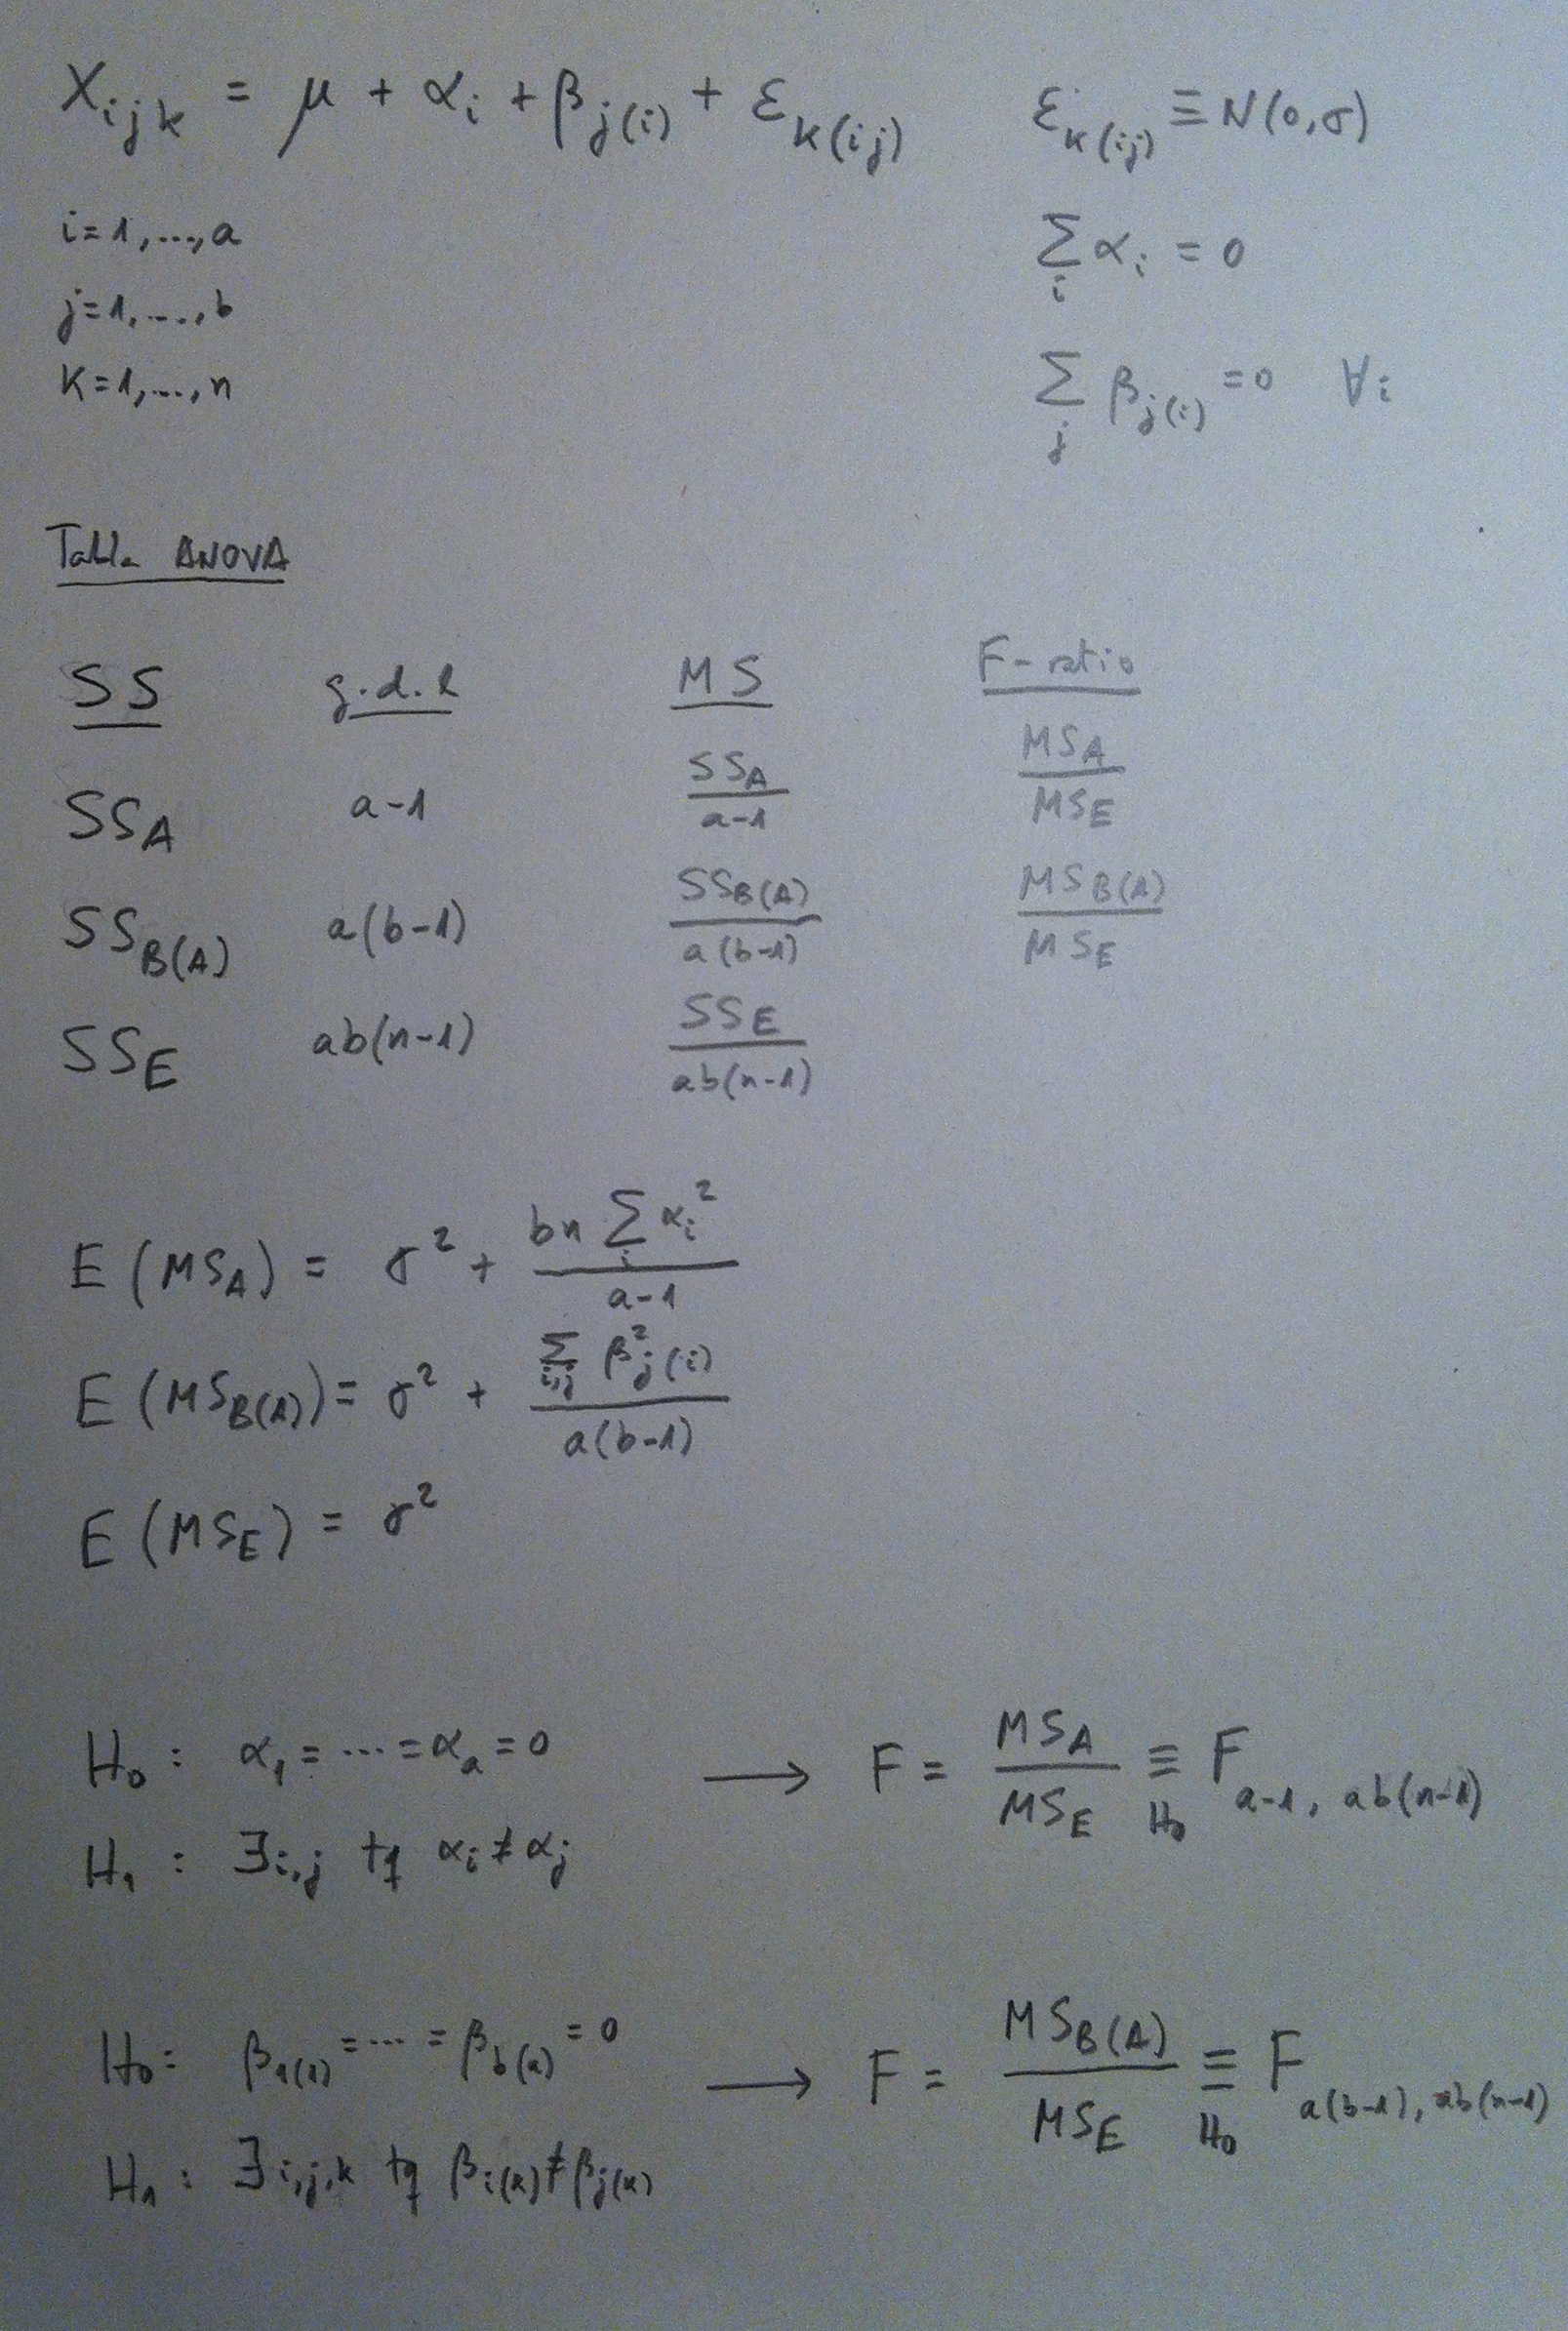 X_{ijk} = μ + α_i + β_{j(i)} + ε_{k(ij)}    ε_{k(ij)} ≡ N(0,σ)
i=1,...,a    ∑_i α_i = 0
j=1,...,b
k=1,...,n    ∑_j β_{j(i)} = 0  ∀i
Tabla ANOVA
SS    g.d.l    MS    F-ratio
SS_A    a-1    SS_A/(a-1)    MS_A/MS_E
SS_{B(A)}    a(b-1)    SS_{B(A)}/(a(b-1))    MS_{B(A)}/MS_E
SS_E    ab(n-1)    SS_E/(ab(n-1))
E(MS_A) = σ² + (bn ∑_i α_i²)/(a-1)
E(MS_{B(A)}) = σ² + (∑_{i,j} β²_{j(i)})/(a(b-1))
E(MS_E) = σ²
H₀: α₁ = ... = α_a = 0  →  F = MS_A/MS_E ≡_{H₀} F_{a-1, ab(n-1)}
H₁: ∃i,j tq α_i ≠ α_j
H₀: β_{1(1)} = ... = β_{b(a)} = 0  →  F = MS_{B(A)}/MS_E ≡_{H₀} F_{a(b-1), ab(n-1)}
H₁: ∃i,j,k tq β_{i(k)} ≠ β_{j(k)}